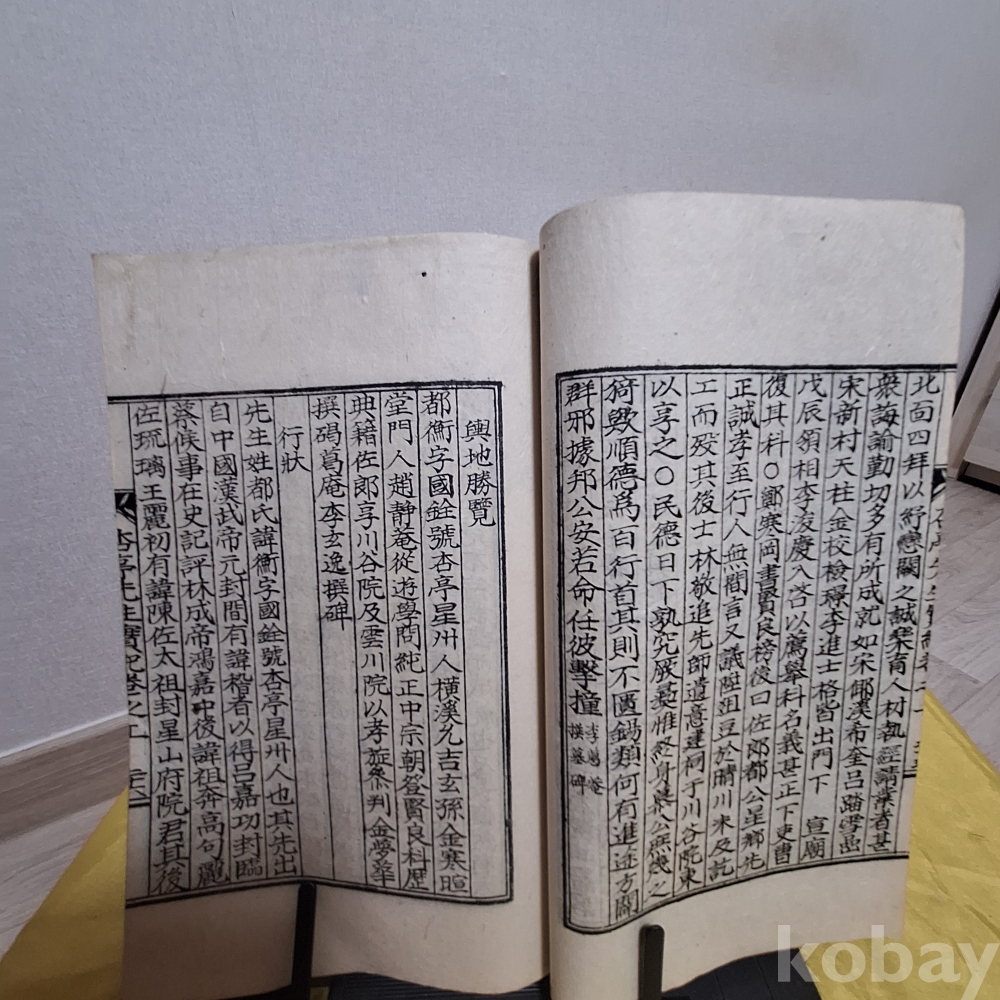 北面四拜以紓戀闕之誠樂育人材執經請業者甚
衆誨諭勤切多有所成就如宋郿溪希奎呂踏雪
宋新村天柱金校檢璟李進士格皆出門下　宣廟
戊辰領相李浚慶入啓以薦擧科名義甚正下吏曹
復其科○鄭寒岡書賢良榜後曰佐郎都公星鄕先
正誠孝至行人無間言又議陞俎豆於晴川未及訖
工而歿其後士林敬追先師遺意建祠于川谷院東
以享之○民德日下孰究厥彝惟終身慕公無幾之
猗歟順德爲百行首其則不匱錫類何有進途方闢
群邪據邦公安若命任彼擊撞 李葛菴撰墓碑
輿地勝覽
都衡字國銓號杏亭星州人橫溪允吉玄孫金寒暄
堂門人趙靜菴從遊學問純正中宗朝登賢良科歷
典籍佐郎享川谷院及雲川院以孝旋叅判金夢華
撰碣葛庵李玄逸撰碑
行狀
先生姓都氏諱衡字國銓號杏亭星州人也其先出
自中國漢武帝元封間有諱稽者以得呂嘉功封臨
蔡候事在史記評林成帝鴻嘉中後諱祖奔高句麗
佐琉璃王麗初有諱陳佐太祖封星山府院君其後
杏亭先生實紀卷之二